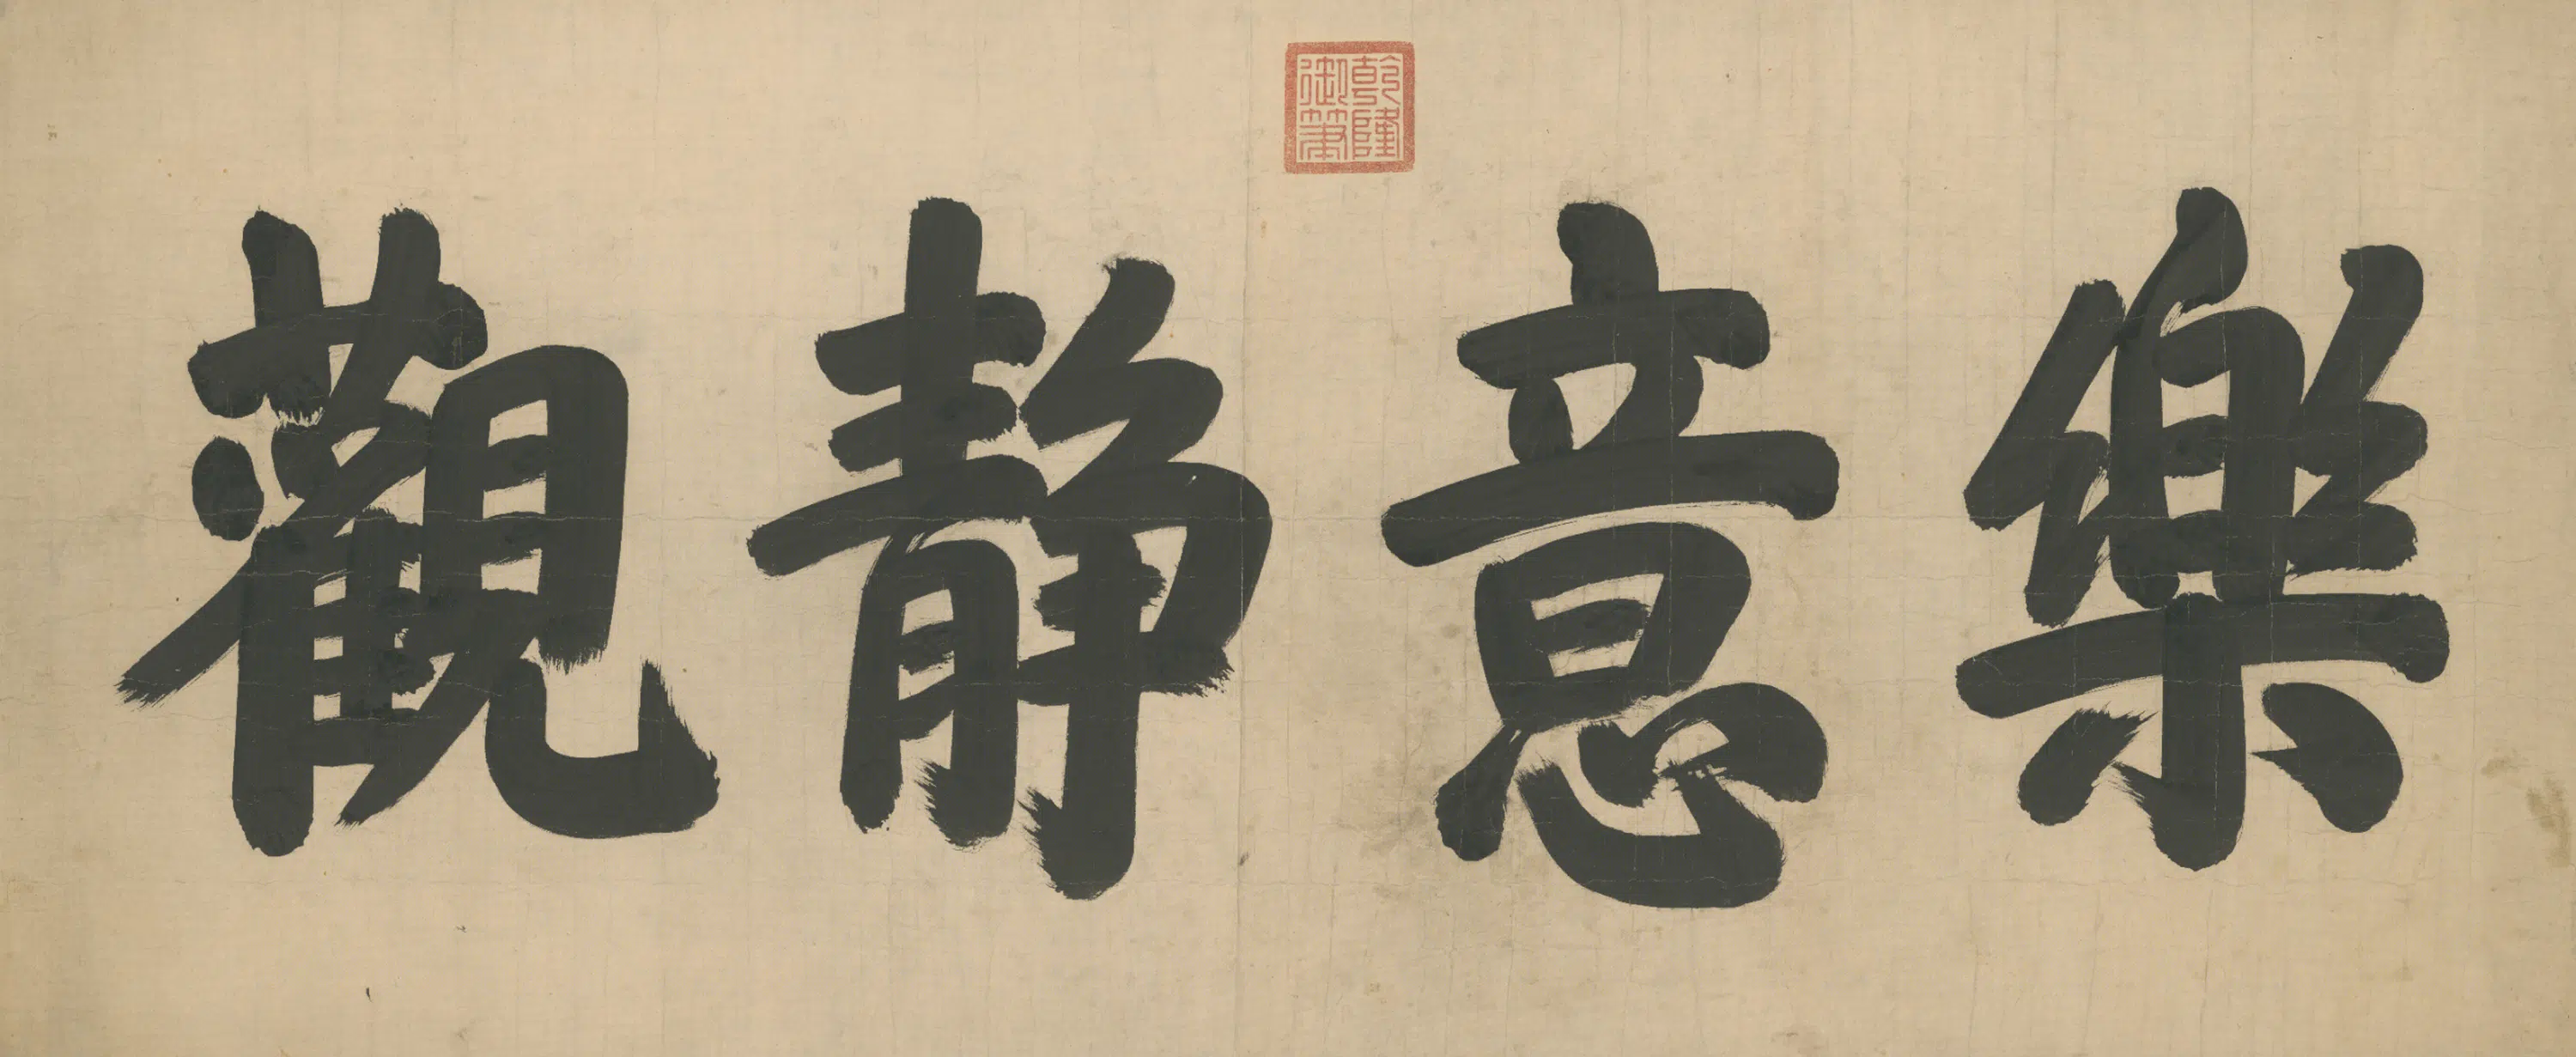 樂意静觀
乾隆
御筆